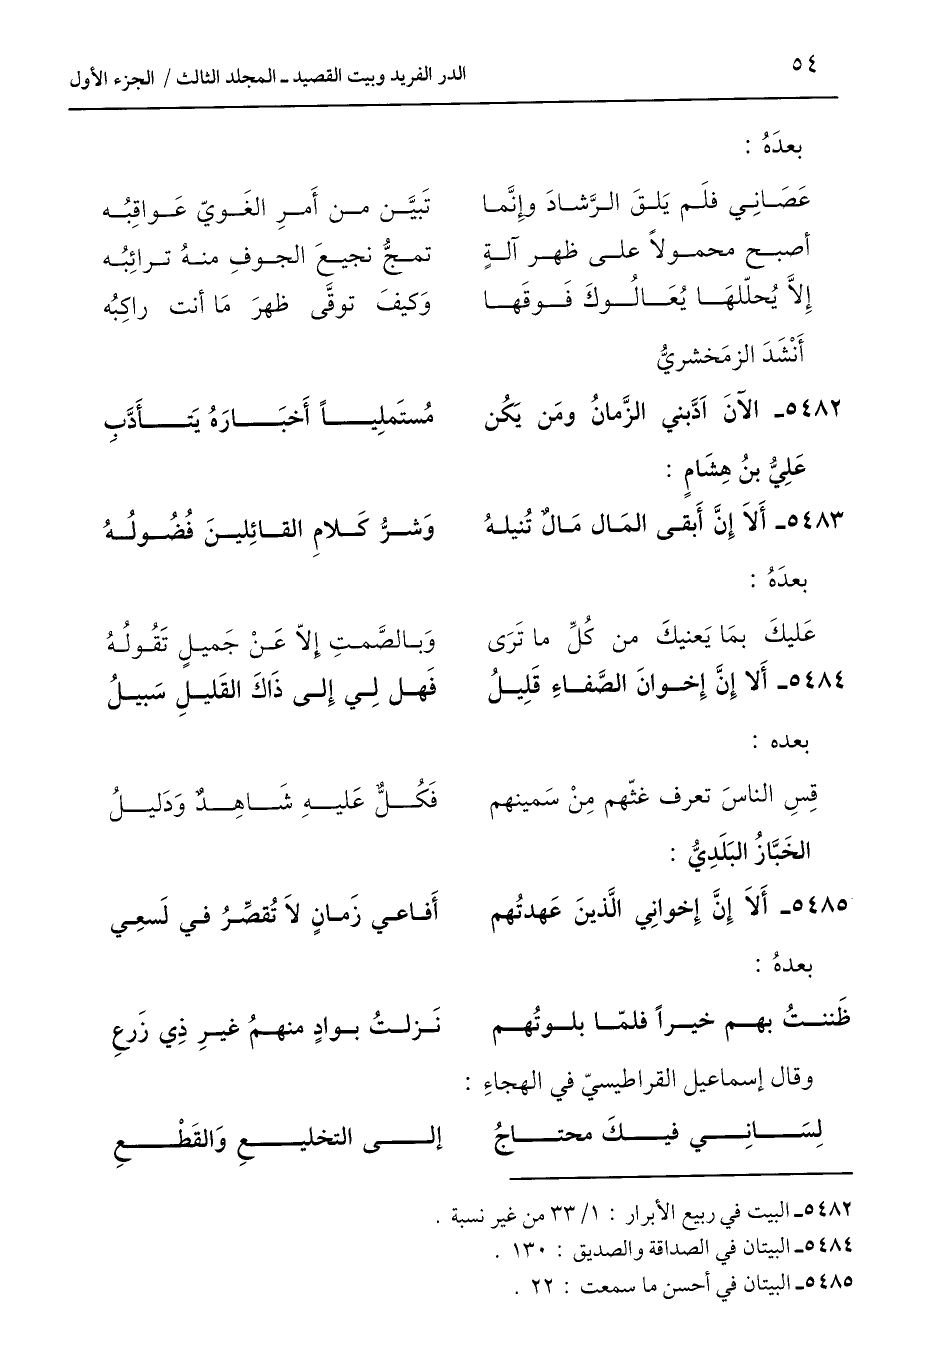 ٥٤
الدر الفريد وبيت القصيد - المجلد الثالث / الجزء الأول
بعدَهُ :
عَصَانِي فلَم يَلقَ الرَّشادَ وإنَّما تَبيَّن من أَمرِ الغَويّ عَواقِبُه
أصبح محمولاً على ظهر آلةٍ تمجُّ نجيعَ الجوفِ منهُ ترائِبُه
إلاَّ يُحلّلهَا يُعَالُوكَ فَوقَها وَكيفَ توقَّى ظهرَ مَا أنت راكِبُه
أَنْشَدَ الزمَخشريُّ
٥٤٨٢ـ الآنَ آدَّبني الزَّمانُ ومَن يَكُن مُستَملِياً أَخبَارَهُ يَتَأَدَّبِ
عَلِيُّ بنُ هِشَامٍ :
٥٤٨٣ـ أَلاَ إنَّ أَبقى المَال مَالٌ تُنيلهُ وَشرُّ كَلامِ القَائِلينَ فُضُولُهُ
بعدَهُ :
عَليكَ بمَا يَعنيكَ من كُلِّ ما تَرَى وَبالصَّمتِ إلاّ عَنْ جَميلٍ تَقُولُهُ
٥٤٨٤ـ أَلا إنَّ إخوانَ الصَّفاءِ قَليلُ فهل لِي إلى ذَاكَ القَليلِ سَبيلُ
بعده :
قِسِ الناسَ تعرف غثّهم مِنْ سَمينهم فَكُلٌّ عَليهِ شَاهِدٌ وَدَليلُ
الخَبَّازُ البَلَدِيُّ :
٥٤٨٥ـ أَلاَ إنَّ إخوانِي الَّذينَ عَهدتُهم أَفاعي زَمانٍ لاَ تُقصِّرُ في لَسعِي
بعدهُ :
ظَننتُ بهم خيراً فلمّا بلوتُهم نَزلتُ بوادٍ منهمُ غيرِ ذِي زَرعِ
وقال إسماعيل القراطيسيّ في الهجاءِ :
لِسَانِي فيكَ محتاجُ إلى التخليعِ وَالقَطْعِ
٥٤٨٢ـ البيت في ربيع الأبرار : ١/ ٣٣ من غير نسبة .
٥٤٨٤ـ البيتان في الصداقة والصديق : ١٣٠ .
٥٤٨٥ـ البيتان في أحسن ما سمعت : ٢٢ .